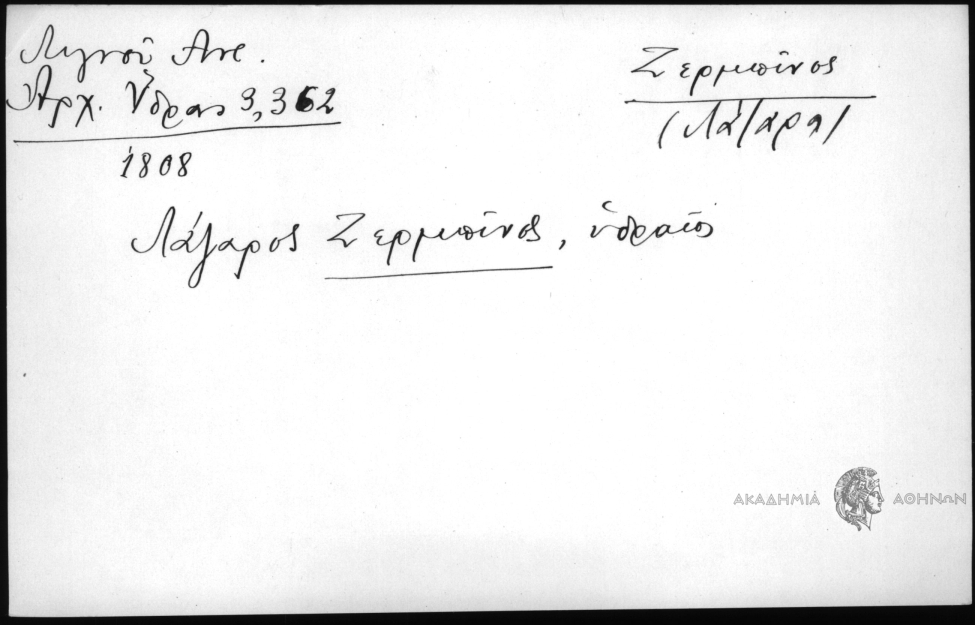 Λιγνοῦ Αντ.
Ἀρχ. Ὕδρας 3,362
1808
Ζερμπῖνος
(Λάζαρος)
Λάζαρος Ζερμπῖνος, ὑδραῖος
ΑΚΑΔΗΜΙΑ ΑΘΗΝΩΝ